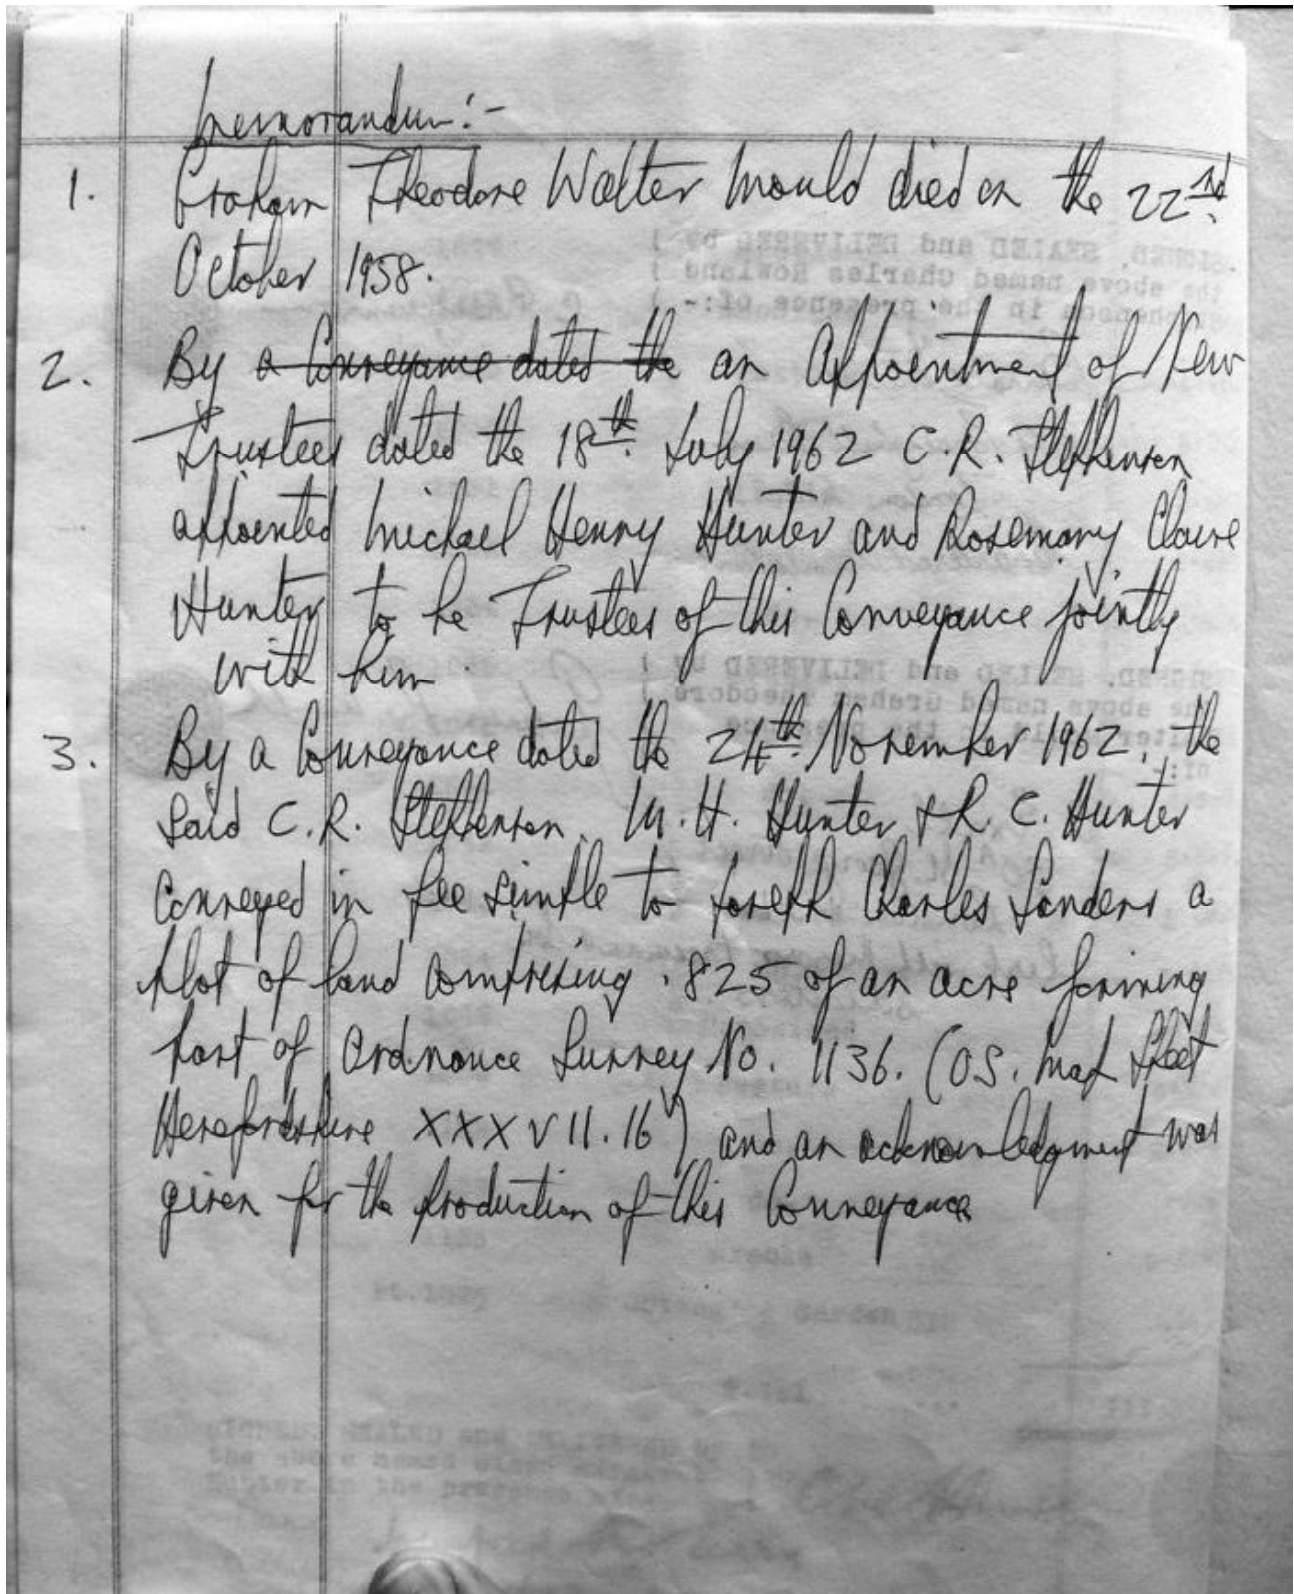 Memorandum:-
1. Graham Theodore Walter Mould died on the 22nd.
October 1958.
2. By a Conveyance dated the an Appointment of New
Trustees dated the 18th. July 1962 C.R. Stephenson
appointed Michael Henry Hunter and Rosemary Claire
Hunter to be Trustees of this Conveyance jointly
with him.
3. By a Conveyance dated the 24th. November 1962, the
said C.R. Stephenson, M.H. Hunter & R.C. Hunter
conveyed in fee simple to Joseph Charles Sanders a
plot of land comprising .825 of an acre forming
part of Ordnance Survey No. 1136. (OS. Map Sheet
Herefordshire XXXVII.16) and an acknowledgment was
given for the production of this Conveyance